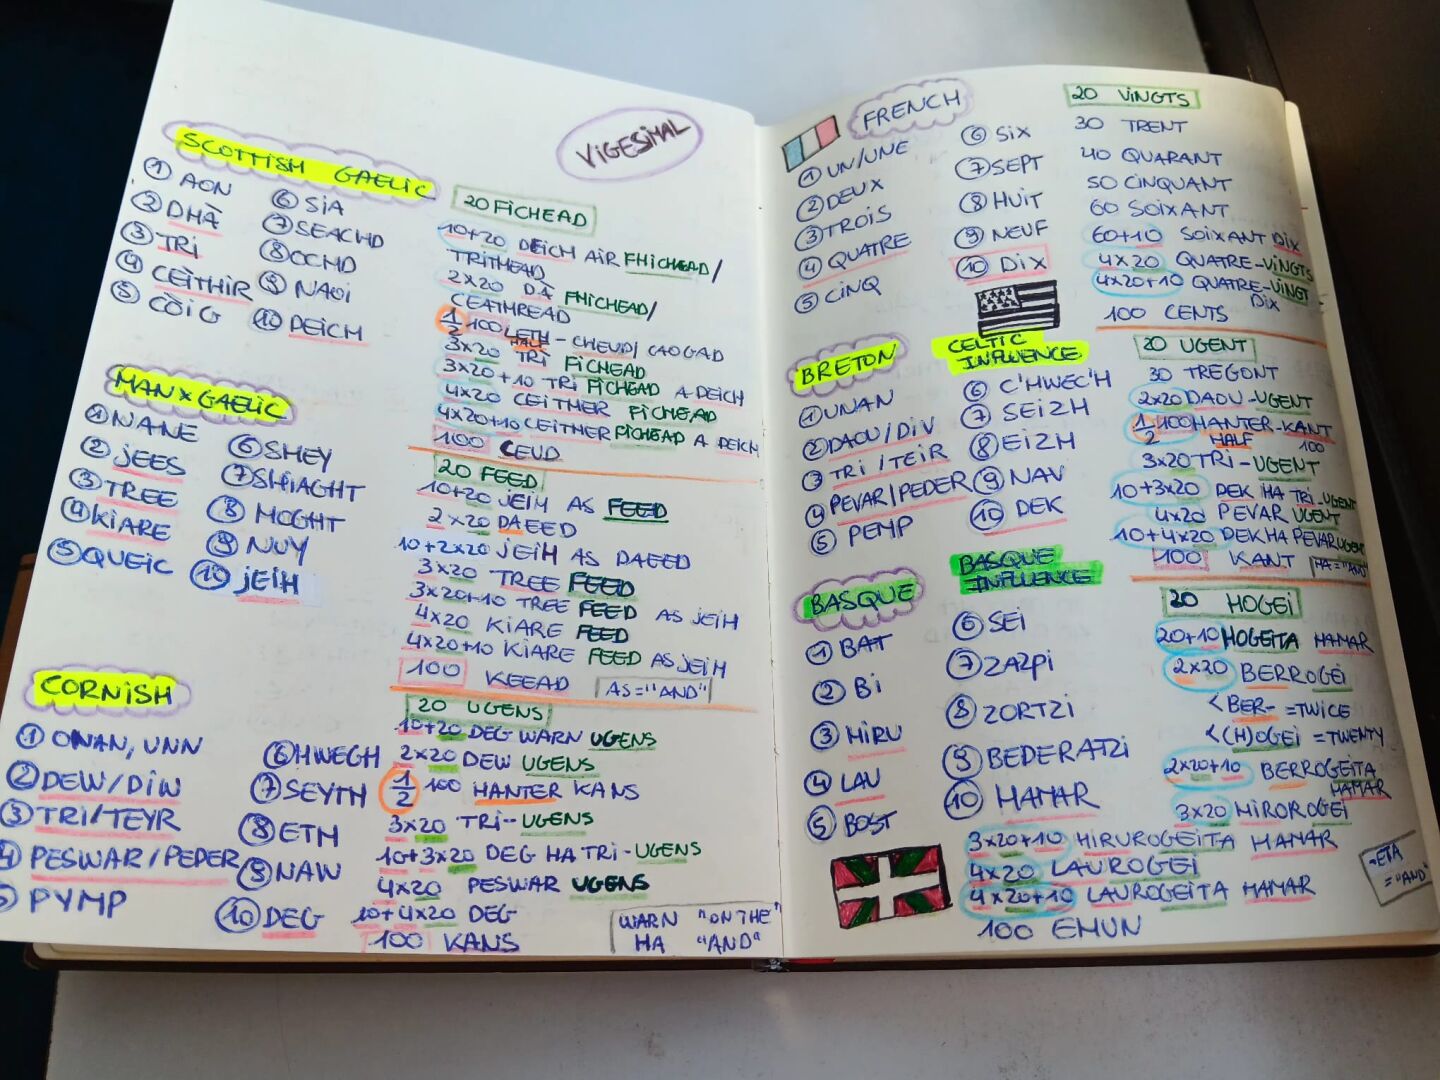 VIGESIMAL
SCOTTISH GAELIC
① AON
② DHÀ
③ TRI
④ CEITHIR
⑤ CÒIG
⑥ SIA
⑦ SEACHD
⑧ OCHD
⑨ NAOI
⑩ DEICH
20 FICHEAD
10+20 DEICH AIR FHICHEAD/
TRITHEAD
2x20 DÀ FHICHEAD/
CEATHREAD
1/2 100 LETH-CHEUD/CAOGAD
HALF
3x20 TRI FICHEAD
3x20+10 TRI FICHEAD A DEICH
4x20 CEITHER FICHEAD
4x20+10 CEITHER FICHEAD A DEICH
100 CEUD
MANX GAELIC
① NANE
② JEES
③ TREE
④ KIARE
⑤ QUEIG
⑥ SHEY
⑦ SHIAGHT
⑧ HOGHT
⑨ NUY
⑩ JEIH
20 FEED
10+20 JEIH AS FEED
2x20 DAEED
10+2x20 JEIH AS DAEED
3x20 TREE FEED
3x20+10 TREE FEED AS JEIH
4x20 KIARE FEED
4x20+10 KIARE FEED AS JEIH
100 KEEAD
AS="AND"
CORNISH
① ONAN, UNN
② DEW/DIW
③ TRI/TEYR
④ PESWAR/PEDER
⑤ PYMP
⑥ HWEGH
⑦ SEYTH
⑧ ETH
⑨ NAW
⑩ DEG
20 UGENS
10+20 DEG WARN UGENS
2x20 DEW UGENS
1/2 100 HANTER KANS
3x20 TRI-UGENS
10+3x20 DEG HA TRI-UGENS
4x20 PESWAR UGENS
10+4x20 DEG
100 KANS
WARN "ON THE"
HA "AND"
FRENCH
① UN/UNE
② DEUX
③ TROIS
④ QUATRE
⑤ CINQ
⑥ SIX
⑦ SEPT
⑧ HUIT
⑨ NEUF
⑩ DIX
20 VINGTS
30 TRENT
40 QUARANT
50 CINQUANT
60 SOIXANT
60+10 SOIXANT DIX
4x20 QUATRE-VINGTS
4x20+10 QUATRE-VINGT
DIX
100 CENTS
BRETON
CELTIC
INFLUENCE
① UNAN
② DAOU/DIV
③ TRI/TEIR
④ PEVAR/PEDER
⑤ PEMP
⑥ C'HWEC'H
⑦ SEIZH
⑧ EIZH
⑨ NAV
⑩ DEK
20 UGENT
30 TREGONT
2x20 DAOU-UGENT
1/2 100 HANTER-KANT
HALF 100
3x20 TRI-UGENT
10+3x20 DEK HA TRI-UGENT
4x20 PEVAR UGENT
10+4x20 DEK HA PEVAR UGENT
100 KANT
HA="AND"
BASQUE
BASQUE
INFLUENCE
① BAT
② BI
③ HIRU
④ LAU
⑤ BOST
⑥ SEI
⑦ ZAZPI
⑧ ZORTZI
⑨ BEDERATZI
⑩ HAMAR
20 HOGEI
20+10 HOGEITA HAMAR
2x20 BERROGEI
<BER- =TWICE
<(H)OGEI =TWENTY
2x20+10 BERROGEITA
HAMAR
3x20 HIROROGEI
3x20+10 HIRUROGEITA HAMAR
4x20 LAUROGEI
4x20+10 LAUROGEITA HAMAR
100 EHUN
-ETA
="AND"